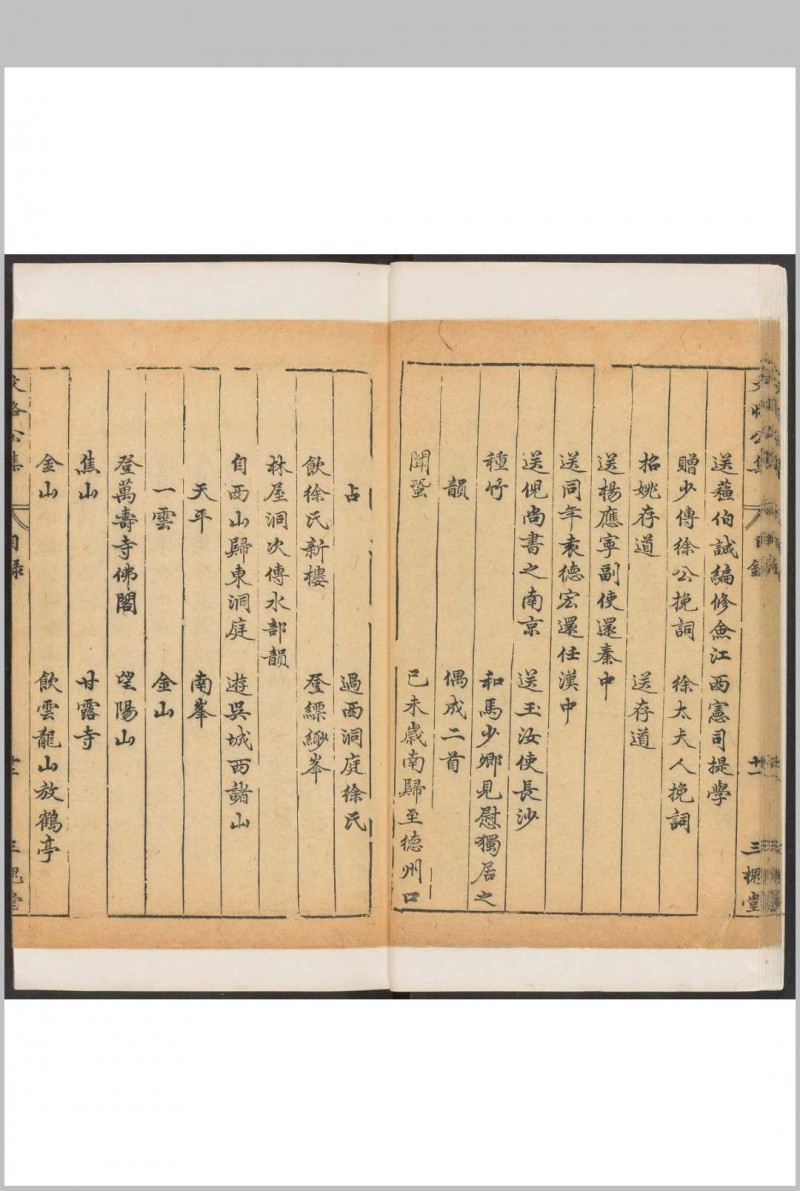 目錄 十一 三槐堂
送蘓伯誠編修僉江西憲司提學
贈少傅徐公挽詞 徐太夫人挽詞
招姚存道 送存道
送楊應寧副使還秦中
送同年袁德宏還任漢中
送倪尚書之南京 送玉汝使長沙
種竹 和馬少卿見慰獨居之
韻 偶成二首
聞蛩 己未歲南歸至德州口
占 過西洞庭徐氏
飲徐氏新樓 登縹緲峯
林屋洞次傅水部韻
自西山歸東洞庭 遊吳城西諸山
天平 南峯
一雲 金山
登萬壽寺佛閣 望陽山
焦山 甘露寺
金山 飲雲龍山放鶴亭
文恪公集 目錄 十二 三槐堂